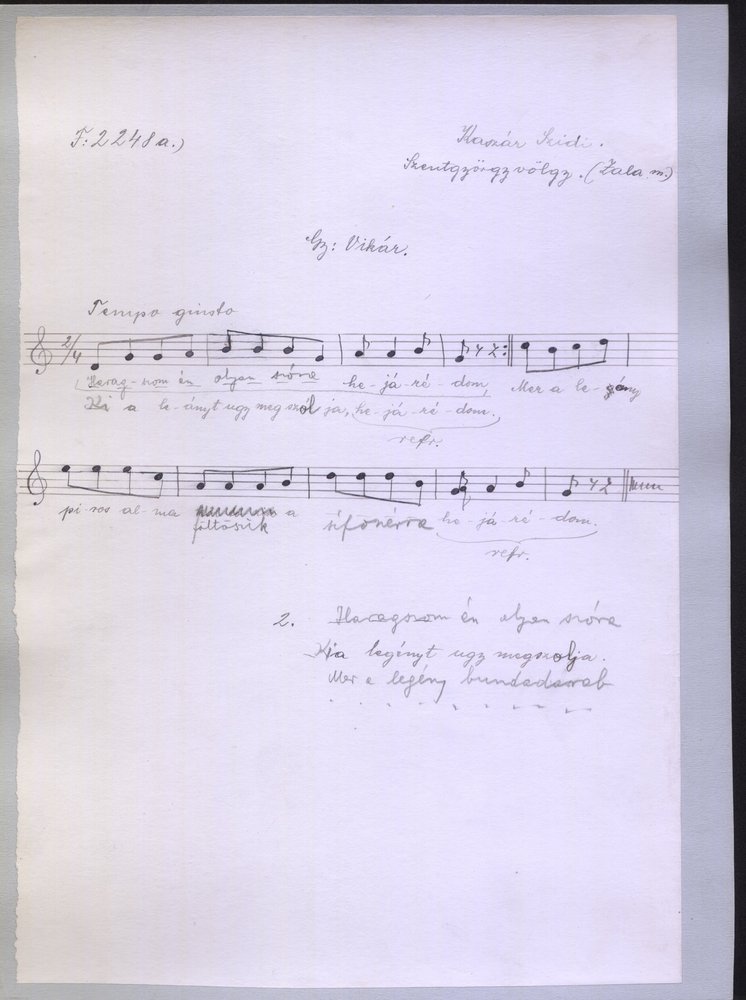 F: 2248 a.)
Kaszár Szidi.
Szentgyörgyvölgy. (Zala m.)
Gy: Vikár.
Tempo giusto
2/4
Harag-szom én olyan szóra he-já-ré-dom, Mer a le-gény
Ki a le-ányt ugy meg szól ja, he-já-ré-dom.
refr.
pi-ros al-ma a
föltösük sifonérra he-já-ré-dom.
refr.
2. Haragszom én olyan szóra
Kia legényt ugy megszolja.
Mer a legény bundadarab